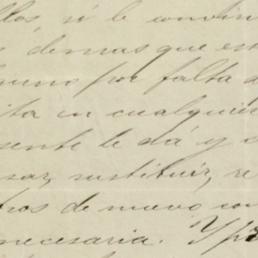 llos si le convin
demas que est
uno por falta d
ita in cualquier
sente le dá y o
sar, sustituir, re
tros de nuevo con
necesaria. Y